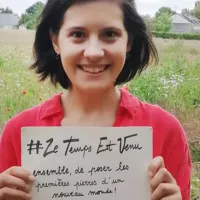 #Le Temps Est Venu
ensemble, de poser les
premières pierres d'un
nouveau monde!